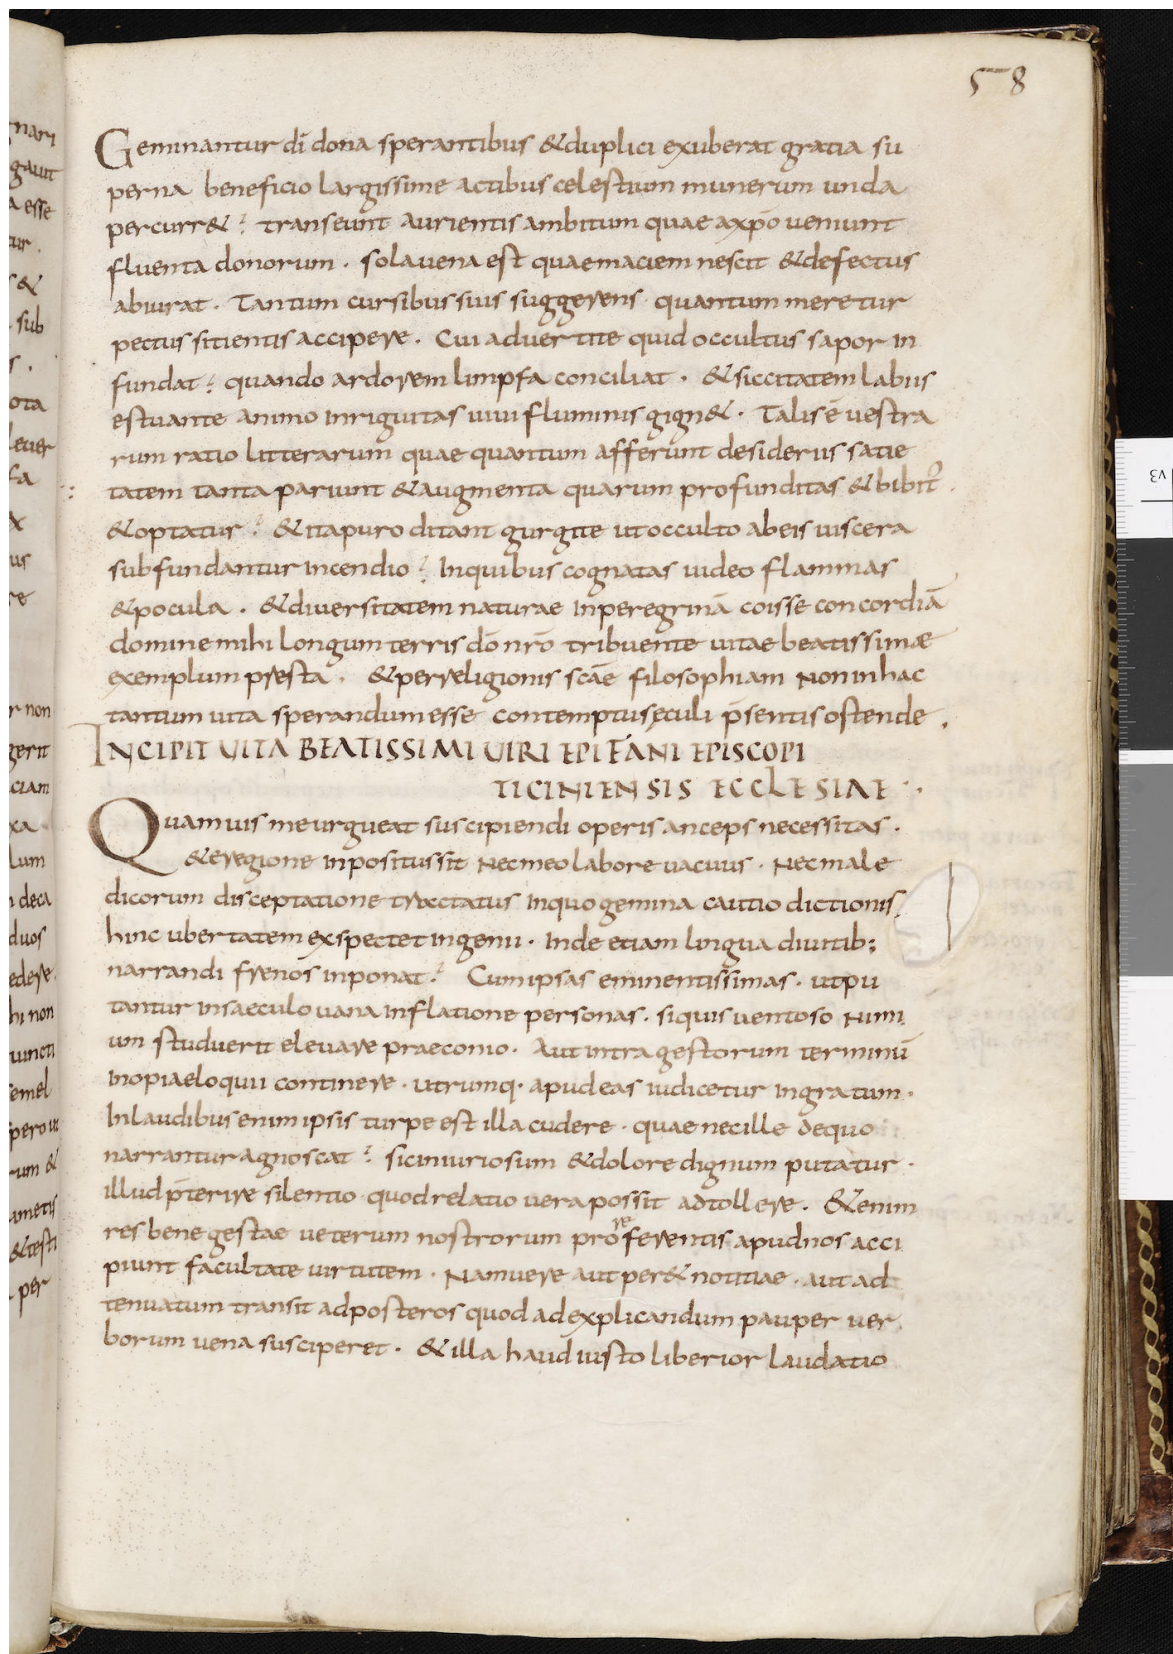 58
Geminantur dī dona sperantibus &duplici exuberat gratia su
perna beneficio largissime actibus celestium munerum unda
percurr& ? transeunt aurientis ambitum quae axp̄o veniunt
fluenta donorum . sola uena est quae maciem nescit &defectus
abiurat . Tantum cursibus suis suggerens quantum meretur
pectus sitientis accipere . Cui advertite quid occultus sapor in
fundat ? quando ardorem limpfa conciliat . &siccitatem labiis
estuante animo inriguitas uiui fluminis gign& . Talis ē vestra
rum ratio litterarum quae quantum afferunt desideriis satie
tatem tanta pariunt &augmenta quarum profunditas &bibit̄
&optatur ? &ita puro ditant gurgite ut occulto ab eis uiscera
subfundantur incendio ? Inquibus cognatas uideo flammas
&pocula . &diversitatem naturae inperegrinā coisse concordiā
domine mihi longum terris dō nr̄o tribuente uitae beatissimae
exemplum presta . &per religionis scāe filosophiam Non in hac
tantum uita sperandum esse contemptu sęculi p̄sentis ostende .
INCIPIT VITA BEATISSIMI VIRI EPIFANI EPISCOPI
TICINIENSIS ECCLESIAE .
Quamuis me urgueat suscipiendi operis anceps necessitas .
&eregione inpositus sit Nec meo labore uacuus . Nec male
dicorum disceptatione tractatus Inquo gemina cautio dictionis
hinc ubertatem exspectet ingenii . Inde etiam lingua diuitib;
narrandi frenos inponat ? Cum ipsas eminentissimas . ut pu
tantur insaeculo uana inflatione personas . siquis ventoso Nimi
um studuerit elevare praeconio . Aut intra gestorum terminū
inopia eloquii continere . utrumq . apud eas iudicetur ingratum .
In laudibus enim ipsis turpe est illa cudere . quae nec ille dequo
narrantur agnoscat ? sic iniuriosum &dolore dignum putatur .
illud p̄terire silentio quod relatio uera possit adtollere . &enim
res bene gestae veterum nostrorum pro re ferentis apud nos acci
piunt facultate uirtutem . Nam vere aut per& notitiae . aut ad
tenuatum transit ad posteros quod ad explicandum pauper ver
borum uena susciperet . &illa haud iusto liberior laudatio